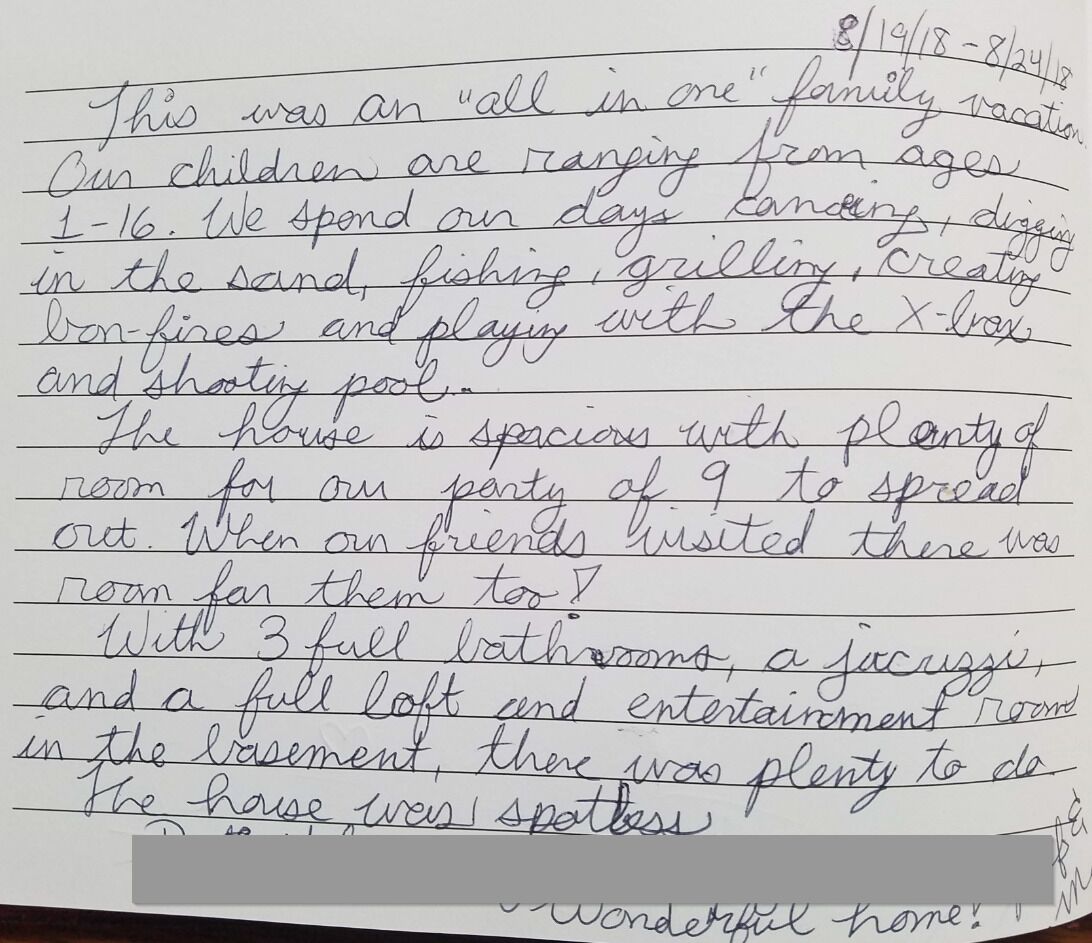 8/19/18 - 8/24/18
This was an "all in one" family vacation.
Our children are ranging from ages
1-16. We spend our days canoeing, digging
in the sand, fishing, grilling, creating
bon-fires and playing with the X-box
and shooting pool..
The house is spacious with plenty of
room for our party of 9 to spread
out. When our friends visited there was
room for them too!
With 3 full bathrooms, a jacuzzi,
and a full loft and entertainment room
in the basement, there was plenty to do.
The house was spotless
&
in
Wonderful home!